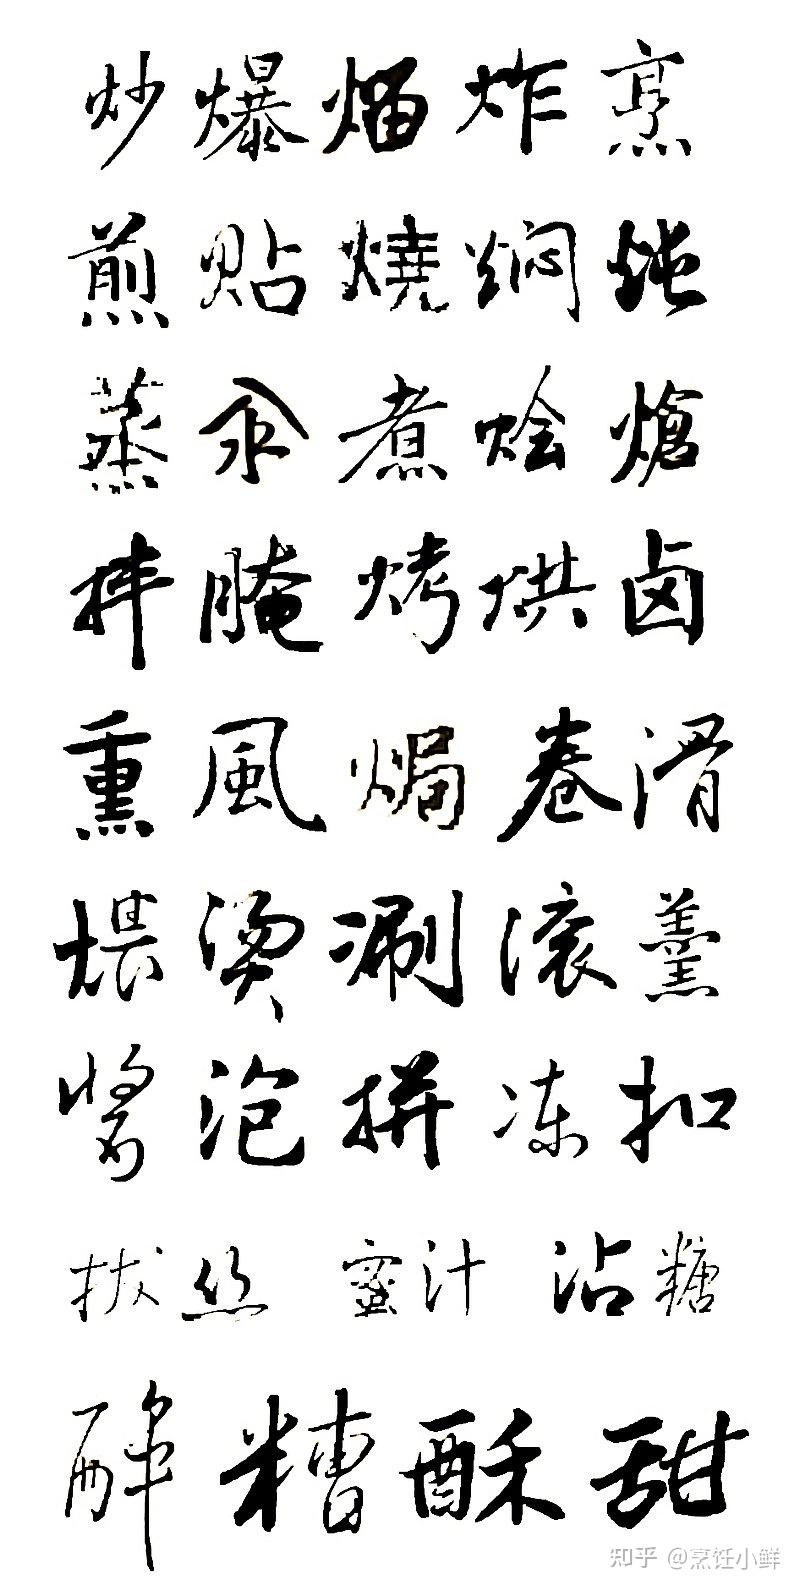 炒 爆 熘 炸 烹
煎 贴 燒 焖 炖
蒸 汆 煮 烩 熗
拌 腌 烤 烘 卤
熏 風 焗 卷 滑
煨 烫 涮 滚 羹
酱 泡 拼 冻 扣
拔丝 蜜汁 沾糖
醉 糟 酥 甜
知乎 @烹饪小鲜